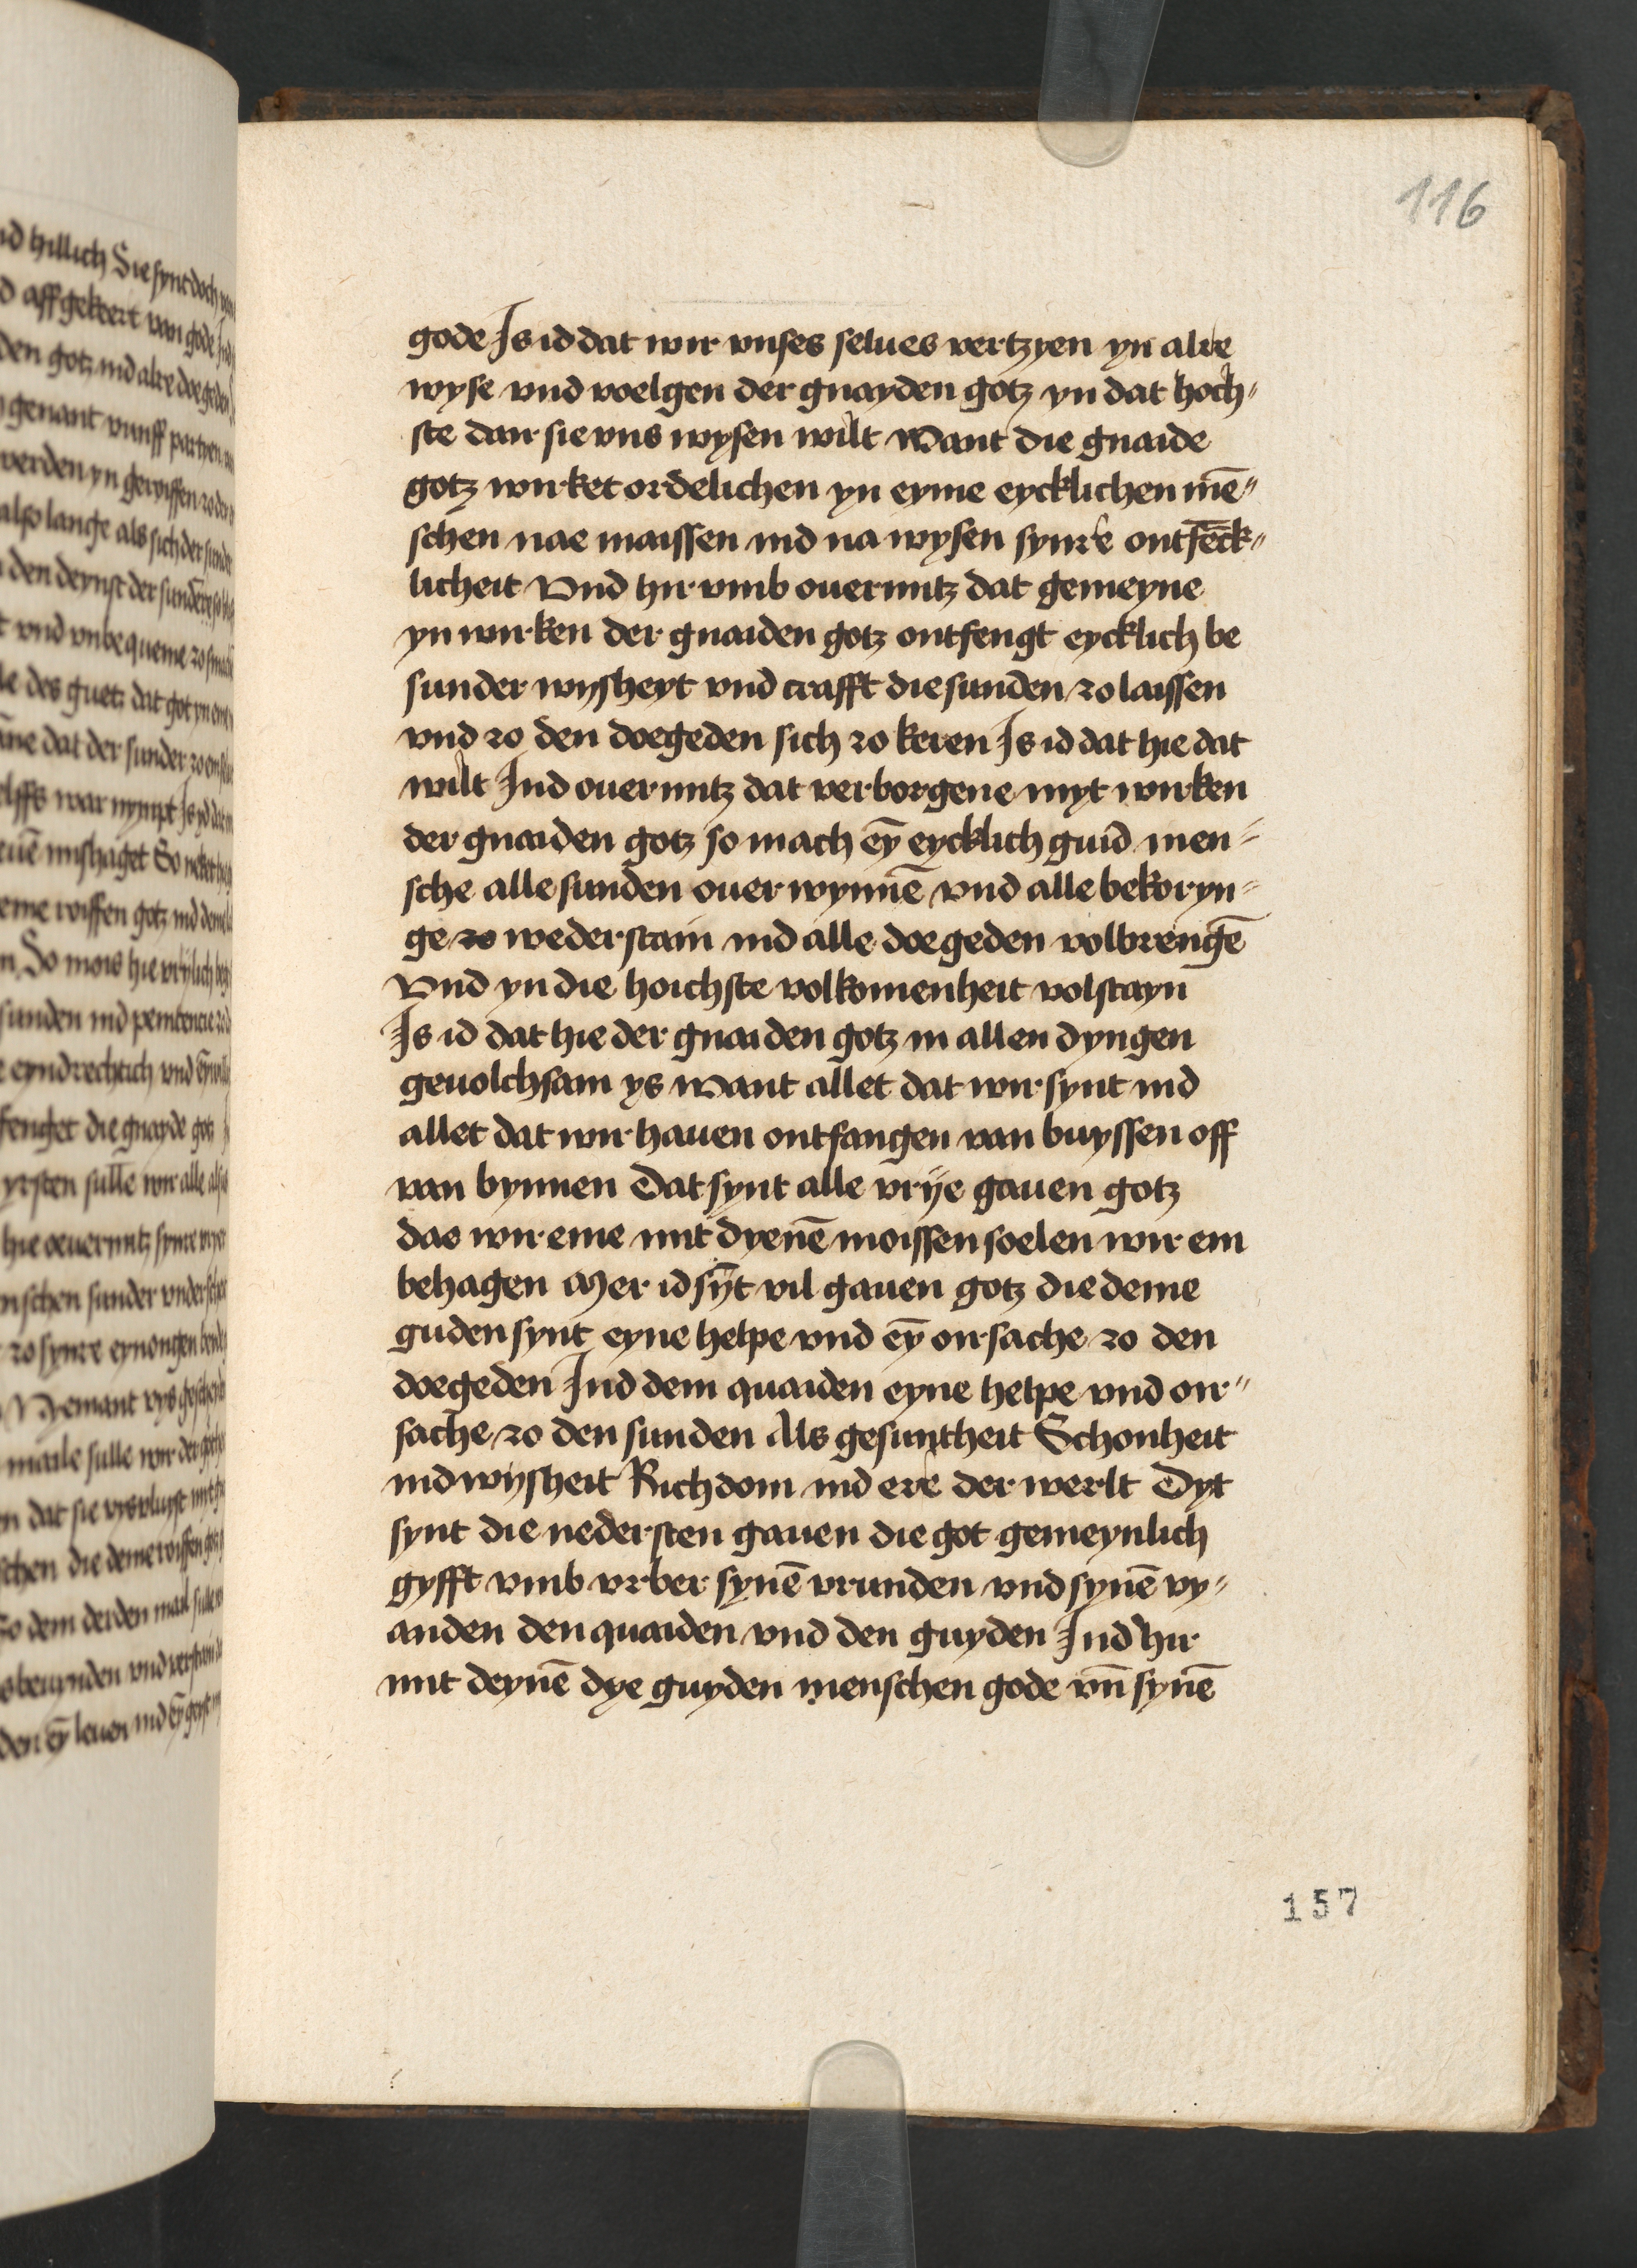 116
gode Is id dat wir vnses selues vertzyen yn alre
wyse vnd voelgen der gnayden gotz yn dat hoch⸗
ste dair sie vns wysen wilt Want die gnaide
gotz wirket ordelichen yn eyme eycklichen mē⸗
schen nae maissen ind na wysen synre ontfēck⸗
licheit Vnd hir vmb ouermitz dat gemeyne
yn wirken der gnaiden gotz ontfengt eycklich be
sunder wysheyt vnd crafft die sunden zo laissen
vnd zo den doegeden sich zo keren Is id dat hie dat
wilt Ind ouermitz dat verborgene myt wirken
der gnaiden gotz so mach eȳ eycklich guid men⸗
sche alle sunden ouerwynnē vnd alle bekoryn⸗
ge zo wederstain ind alle doegeden volbrengē
Vnd yn die hoichste volkomenheit volstayn
Is id dat hie der gnaiden gotz in allen dyngen
geuolchsam ys Want allet dat wir synt ind
allet dat wir hauen ontfangen van buyssen off
van bynnen Dat synt alle vrije gauen gotz
dae wir eme mit dyenē moissen soelen wir em
behagen Mer id sȳt vil gauen gotz die deme
guden synt eyne helpe vnd eȳ oirsache zo den
doegeden Ind dem quaiden eyne helpe vnd oir⸗
sache zo den sunden Als gesuntheit Schonheit
ind wijsheit Richdom ind ere der werlt Dyt
synt die nedersten gauen die got gemeynlich
gyfft vmb vrber synē vrunden vnd synē vy⸗
anden den quaiden vnd den guyden Ind hir
mit deynē dye guyden menschen gode vn̄ synē
157